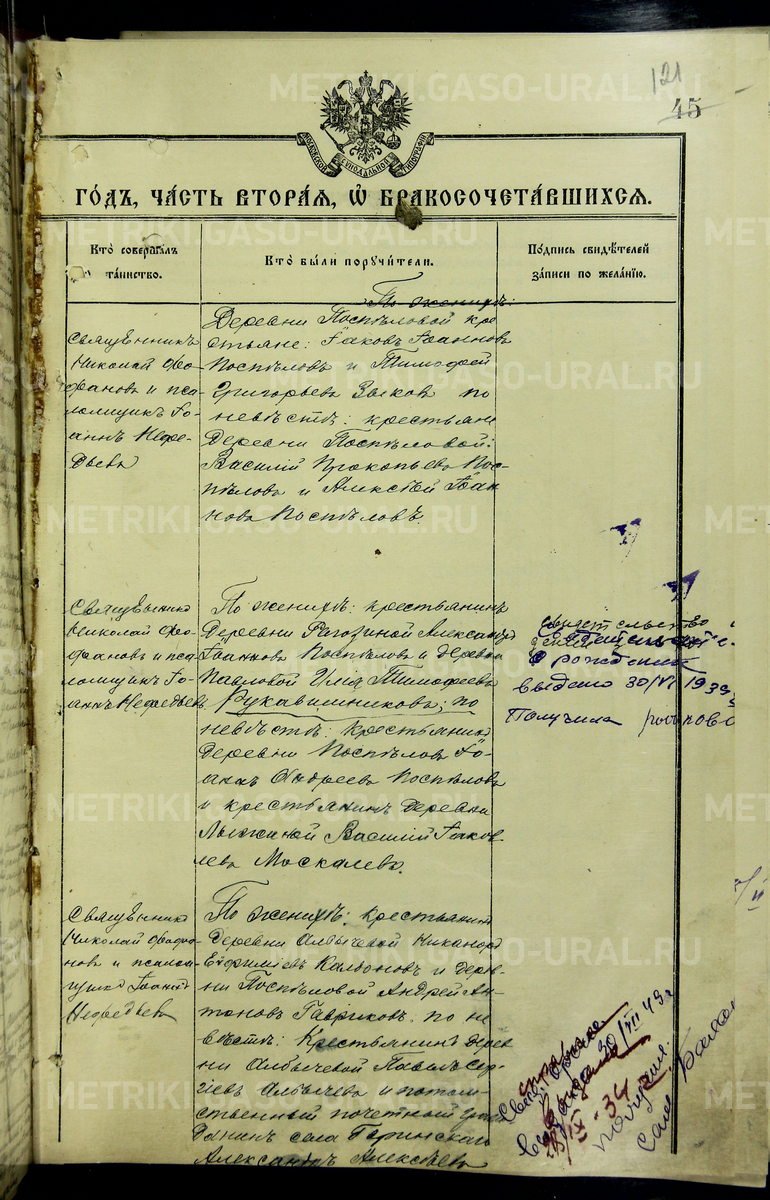 121
45
МОСКОВСКОЙ СѴНОДАЛЬНОЙ ТИПОГРАФІИ
ГОДЪ, ЧАСТЬ ВТОРАЯ, Ѡ БРАКОСОЧЕТАВШИХСЯ.
Кто совершалъ таинство.
Кто были поручители.
Подпись свидѣтелей записи по желанію.
Священникъ
Николай Фео-
фановъ и пса-
ломщикъ Іо-
аннъ Нефе-
дьевъ
По женихѣ:
Деревни Поспѣловой кре-
стьяне: Іаковъ Іоанновъ
Поспѣловъ и Тимофей
Григорьевъ Зыковъ по
невѣстѣ: крестьяне
Деревни Поспѣловой:
Василій Прокопьевъ Пос-
пѣловъ и Алексѣй Іоан-
новъ Поспѣловъ.
Священникъ
Николай Фео-
фановъ и пса-
ломщикъ Іо-
аннъ Нефедьевъ
По женихѣ: крестьянинъ
Деревни Рагозиной Александръ
Іоанновъ Поспѣловъ и деревни
Павловой Илія Тимофеевъ
Рукавишниковъ; по
невѣстѣ: крестьянинъ
Деревни Поспѣловой Іо-
аннъ Андреевъ Поспѣловъ
и крестьянинъ деревни
Лыжиной Василій Іаков-
левъ Москалевъ.
свидетельство
о рождении
выдано 30/VI 1939
Получила
Священникъ
Николай Феофа-
новъ и псалом-
щикъ Іоаннъ
Нефедьевъ
По женихѣ: крестьянинъ
Деревни Алыбычевой Никаноръ
Евфиміевъ и дерев-
ни Поспѣловой Андрей Ан-
тоновъ Гавриковъ. по не-
вѣстѣ: Крестьянинъ дерев-
ни Павелъ Сер-
гіевъ и потом-
ственный почетной граж-
данинъ села Гаринскаго
Александръ Алексѣевъ
30/VII 49 г
28/IX - 34
METRIKI.GASO-URAL.RU